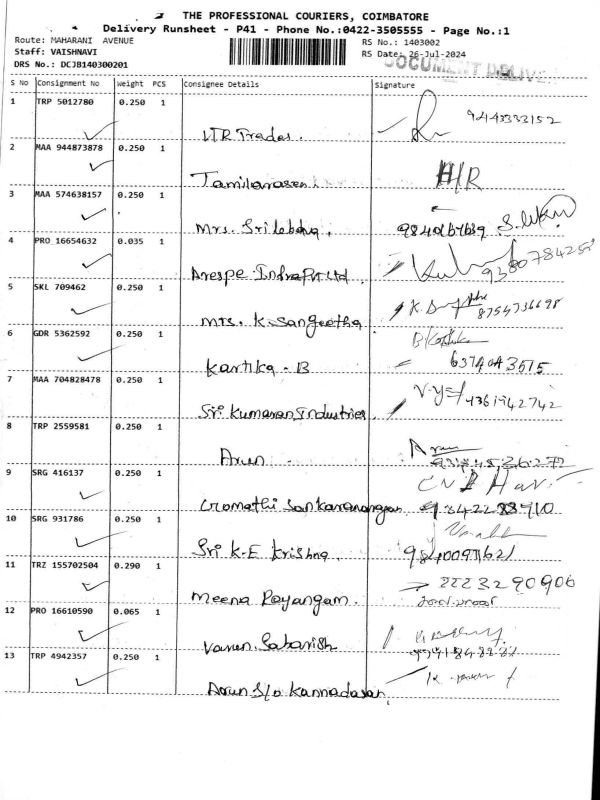 THE PROFESSIONAL COURIERS, COIMBATORE
Delivery Runsheet - P41 - Phone No.:0422-3505555 - Page No.:1
Route: MAHARANI AVENUE
RS No.: 1403002
Staff: VAISHNAVI
RS Date: 26-Jul-2024
DRS No.: DCJB140300201
DOCUMENT DELIVE
S No Consignment No Weight PCS Consignee Details Signature
1 TRP 5012780 0.250 1
VTR Trades. 9443333152
2 MAA 944873878 0.250 1
Tamilarasen. H/R
3 MAA 574638157 0.250 1
Mrs. Srilekha.
4 PRO 16654632 0.035 1
Arespe Infra Pvt Ltd
5 SKL 709462 0.250 1
Mrs. K. Sangeetha 8754736698
6 GDR 5362592 0.250 1
Kartika - B
7 MAA 704828478 0.250 1
Sri Kumaran Industries
8 TRP 2559581 0.250 1
Arun Arun
9 SRG 416137 0.250 1
Gomathi Sankaranarayanan 9842288910
10 SRG 931786 0.250 1
Sri K-E Krishna.
11 TRZ 155702504 0.290 1
Meena Royangam.
12 PRO 16610590 0.065 1
Varun. Sabarish
13 TRP 4942357 0.250 1
Arun S/o Kannadasan